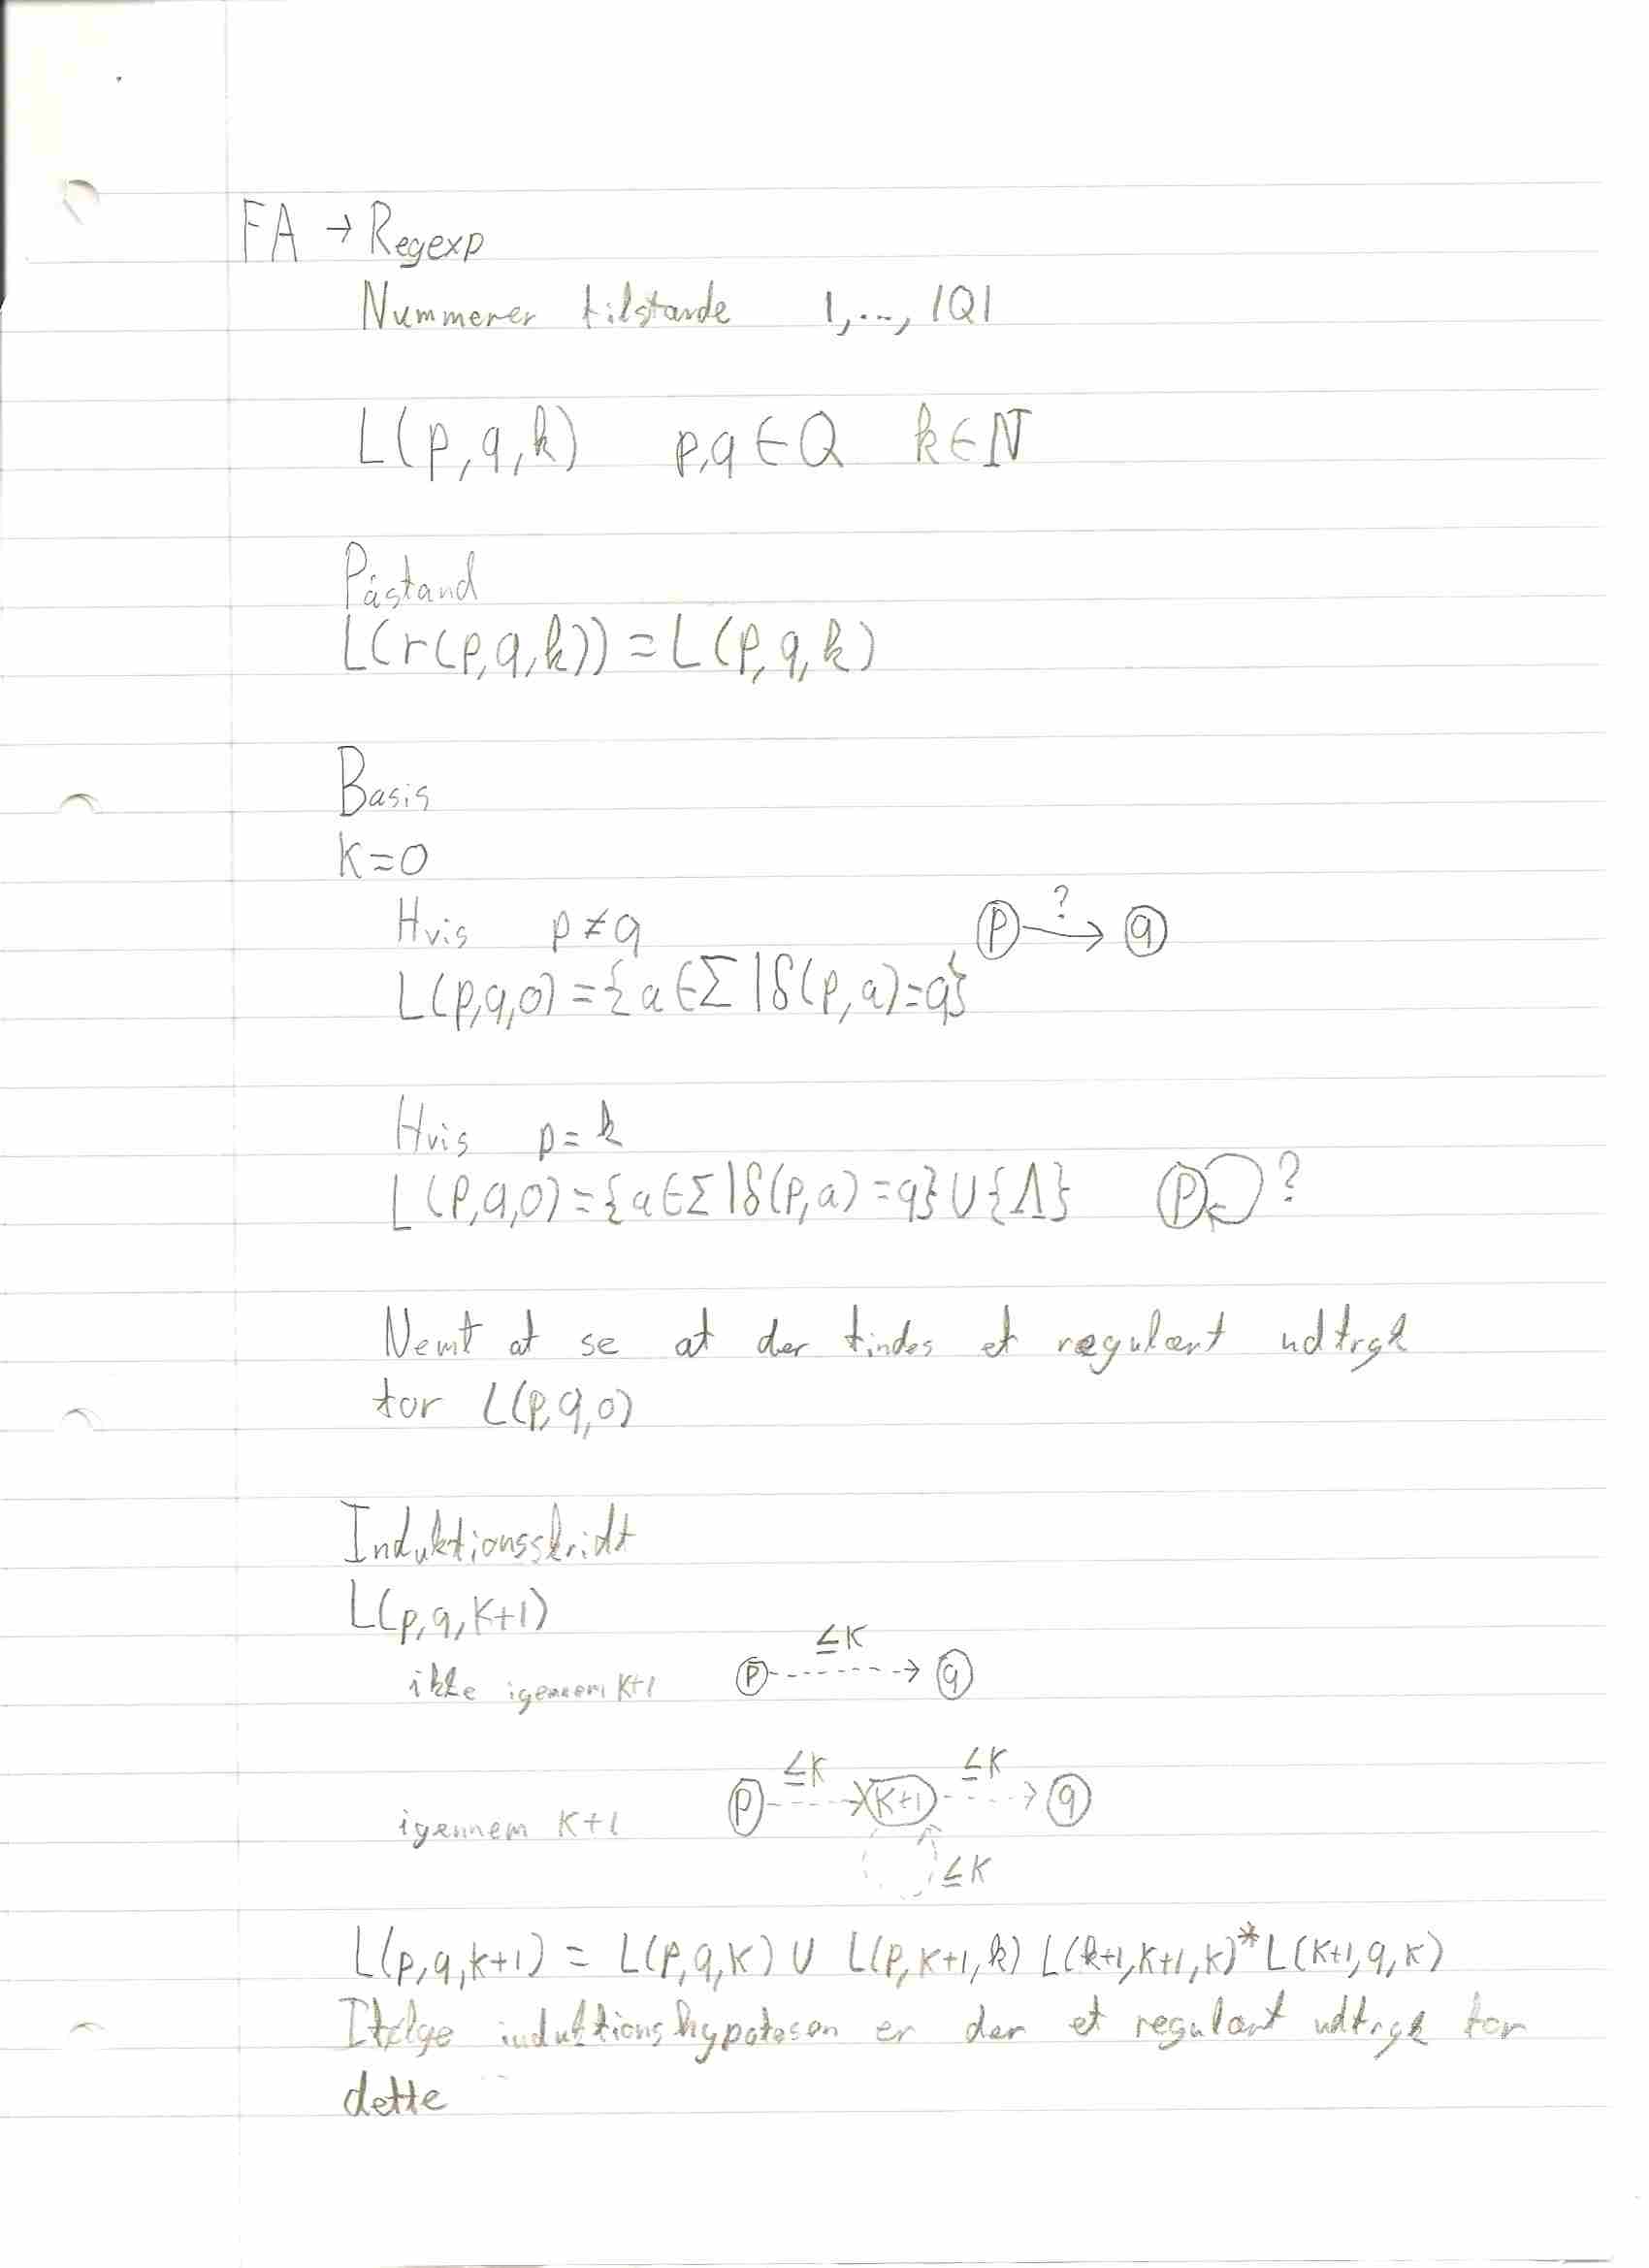 FA → Regexp
Nummerer tilstande 1,..., |Q|
L(p,q,k) p,q ∈ Q k ∈ N
Påstand
L(r(p,q,k)) = L(p,q,k)
Basis
K=0
Hvis p ≠ q
p ? q
L(p,q,0) = {a ∈ Σ | δ(p,a)=q}
Hvis p = k
L(p,q,0) = {a ∈ Σ | δ(p,a) = q} ∪ {Λ} p ?
Nemt at se at der findes et regulært udtryk
for L(p,q,0)
Induktionsskridt
L(p,q,K+1)
≤K
ikke igennem K+1 p q
≤K ≤K
igennem K+1 p K+1 q
≤K
L(p,q,k+1) = L(p,q,K) ∪ L(p,K+1,k) L(k+1,K+1,K)* L(K+1,q,K)
Ifølge induktionshypotesen er der et regulært udtryk for
dette